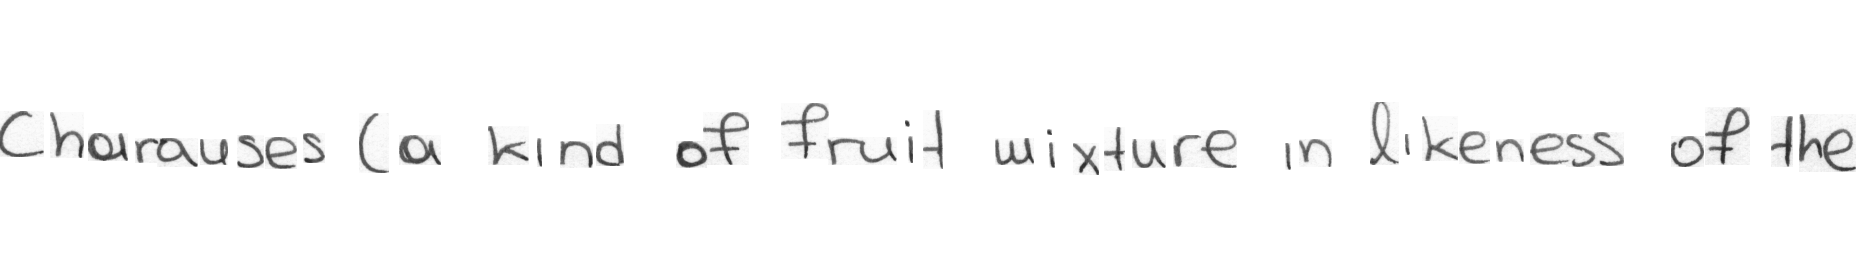 Charauses (a kind of fruit mixture in likeness of the